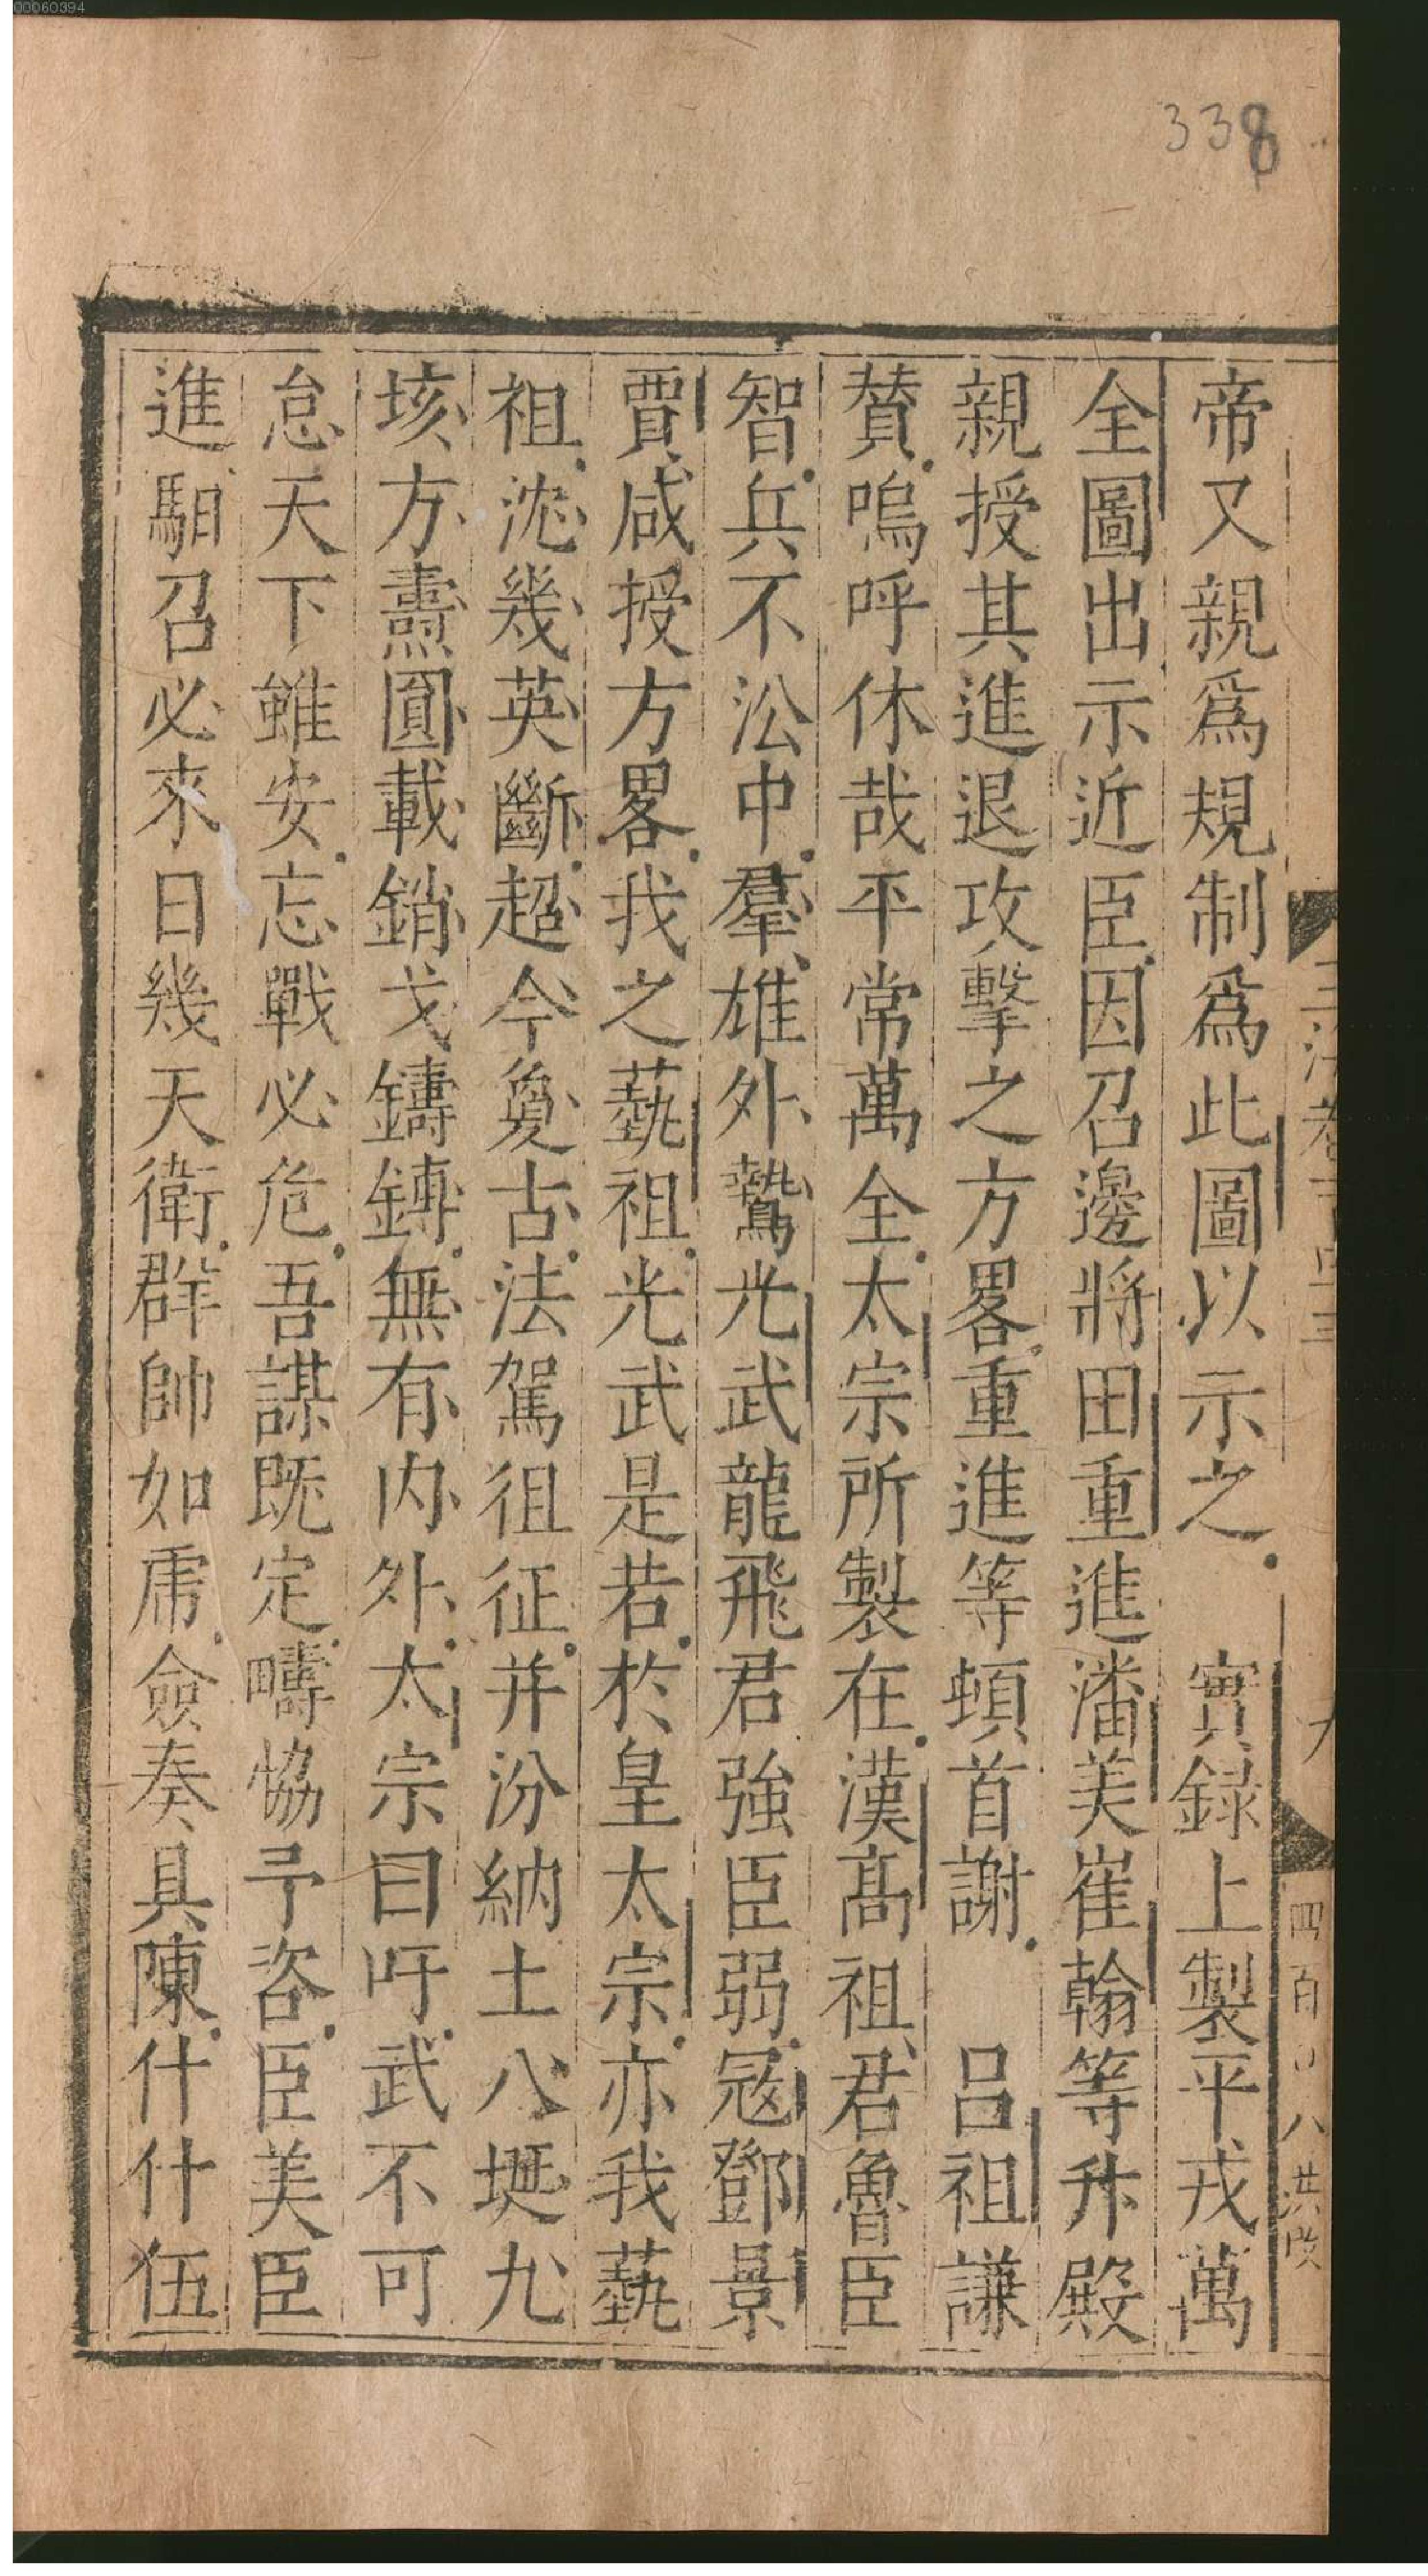 00060394
338
帝又親爲規制爲此圖以示之 實録上製平戎萬
全圖出示近臣因召邊將田重進潘美崔翰等升殿
親授其進退攻擊之方畧重進等頓首謝 呂祖謙
賛嗚呼休哉平常萬全太宗所製在漢髙祖君魯臣
智兵不泌中羣雄外鷙光武龍飛君強臣弱冦鄧景
賈咸授方畧我之藝祖光武是若於皇太宗亦我藝
祖沈幾英斷超今敻古法駕徂征并汾納土八埏九
垓方燾圓載銷戈鑄鎛無有内外太宗曰吁武不可
怠天下雖安忘戰必危吾謀既定疇恊予咨臣美臣
進馹召必來日幾天衛群帥如虎僉奏具陳什什伍